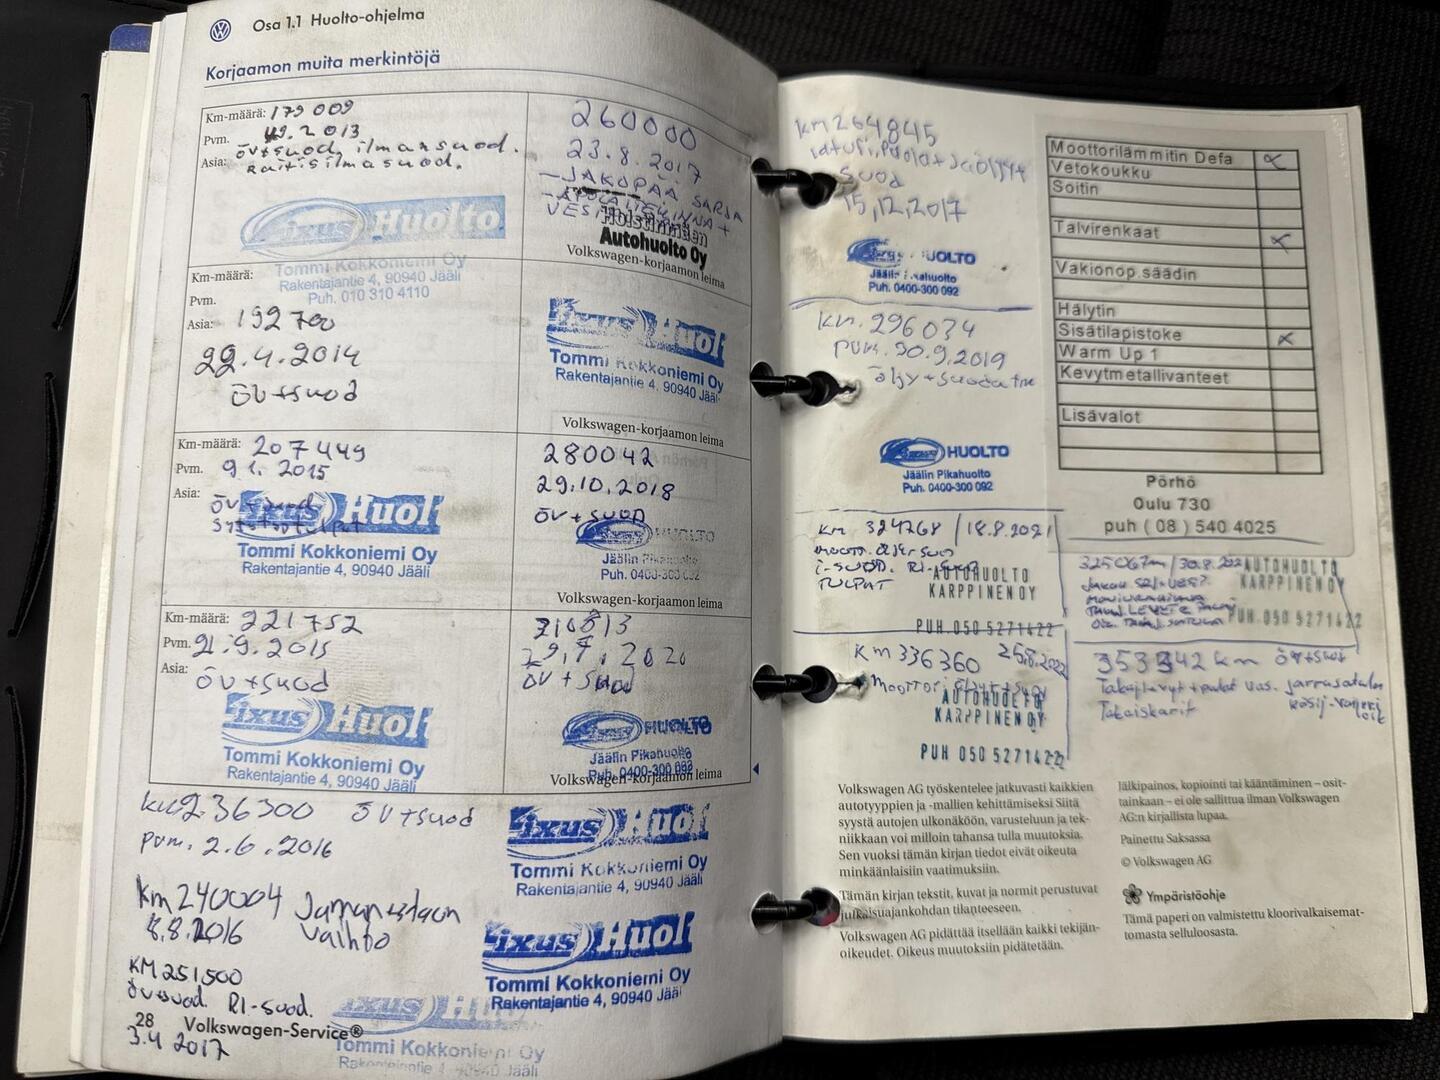 Osa 1.1 Huolto-ohjelma
Korjaamon muita merkintöjä
Km-määrä: 179 009
Pvm. 19.2.2013
Asia: öv+suod, ilmansuod.
Raitisilmasuod.
Fixus Huolto
Tommi Kokkoniemi Oy
Rakentajantie 4, 90940 Jääli
Puh. 010 310 4110
Km-määrä:
Pvm.
Asia: 192 700
22.4.2014
öv+suod
Km-määrä: 207449
Pvm. 9 1. 2015
Asia: öv+suod
Fixus Huol
Tommi Kokkoniemi Oy
Rakentajantie 4, 90940 Jääli
Km-määrä: 221752
Pvm. 21.9.2015
Asia: öv+suod
Fixus Huol
Tommi Kokkoniemi Oy
Rakentajantie 4, 90940 Jääli
260000
23.8.2017
-JAKOPÄÄ SARJA
Autohuolto Oy
Volkswagen-korjaamon leima
Fixus Huol
Tommi Kokkoniemi Oy
Rakentajantie 4, 90940 Jääli
Volkswagen-korjaamon leima
280042
29.10.2018
öv+suod
HUOLTO
Jäälin Pikahuolto
Puh. 0400-300 092
Volkswagen-korjaamon leima
öv + suod
HUOLTO
Jäälin Pikahuolto
Puh. 0400-300 092
Volkswagen-korjaamon leima
km 236300 öv+suod
pvm. 2.6.2016
Fixus Huol
Tommi Kokkoniemi Oy
Rakentajantie 4, 90940 Jääli
km 240004 Jarrunesteen
8.8.2016 vaihto
Fixus Huol
Tommi Kokkoniemi Oy
Rakentajantie 4, 90940 Jääli
KM 251500
öv+suod. RI-suod.
28 Volkswagen-Service®
3.4 2017
Fixus Hu
Tommi Kokkoniemi Oy
km 264845
suod
15.12.2017
HUOLTO
Jäälin Pikahuolto
Puh. 0400-300 092
km. 296034
pvm. 30.9.2019
öljy+suodatin
Fixus HUOLTO
Jäälin Pikahuolto
Puh. 0400-300 092
km 324768 / 18.8.2021
I-SUOD. RI-SUOD
TULPAT
AUTOHUOLTO
KARPPINEN OY
PUH 050 5271422
Km 336360 25.8.2022
AUTOHUOLTO
KARPPINEN OY
PUH 050 5271422
Moottorilämmitin Defa x
Vetokoukku
Soitin
Talvirenkaat x
Vakionop.säädin
Hälytin
Sisätilapistoke x
Warm Up 1
Kevytmetallivanteet
Lisävalot
Pörhö
Oulu 730
puh ( 08 ) 540 4025
AUTOHUOLTO
KARPPINEN OY
PUH 050 5271422
353342 km öv+suod
Takajarrulevyt+palat vas. jarrusatula
Volkswagen AG työskentelee jatkuvasti kaikkien
autotyyppien ja -mallien kehittämiseksi Siitä
syystä autojen ulkonäköön, varusteluun ja tek-
niikkaan voi milloin tahansa tulla muutoksia.
Sen vuoksi tämän kirjan tiedot eivät oikeuta
minkäänlaisiin vaatimuksiin.
Tämän kirjan tekstit, kuvat ja normit perustuvat
julkaisuajankohdan tilanteeseen.
Volkswagen AG pidättää itsellään kaikki tekijän-
oikeudet. Oikeus muutoksiin pidätetään.
Jälkipainos, kopiointi tai kääntäminen – osit-
tainkaan – ei ole sallittua ilman Volkswagen
AG:n kirjallista lupaa.
Painettu Saksassa
© Volkswagen AG
Ympäristöohje
Tämä paperi on valmistettu kloorivalkaisemat-
tomasta selluloosasta.